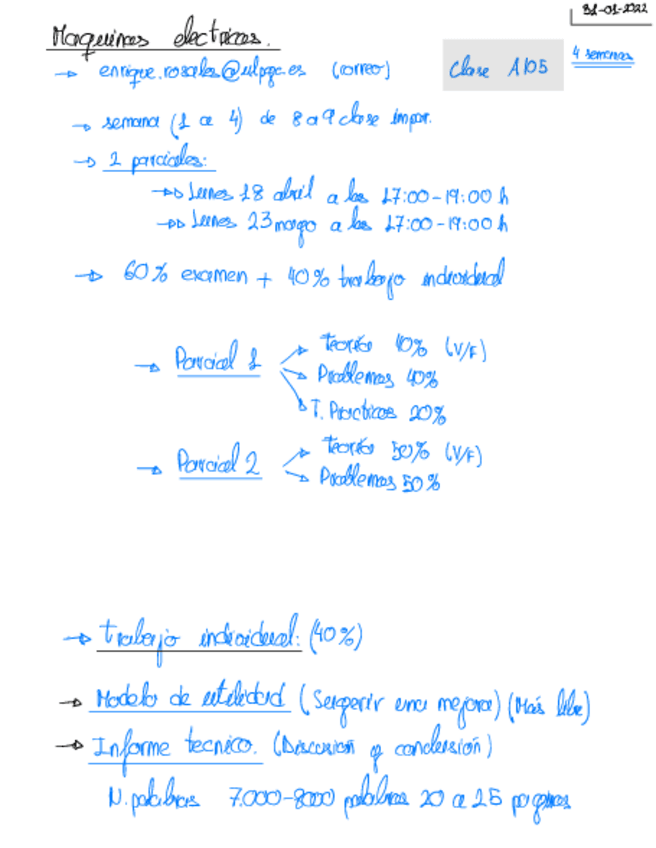 31-01-2022
Maquinas electricas.
Clase A105
4 semanas
→ enrique.rosales@ulpgc.es (correo)
→ semana (1 a 4) de 8 a 9 clase impor.
→ 2 parciales:
→ Lunes 18 abril a las 17:00-19:00 h
→ Lunes 23 mayo a las 17:00-19:00 h
→ 60% examen + 40% trabajo individual
→ Parcial 1
Teoría 40% (V/F)
Problemas 40%
T. Practicas 20%
→ Parcial 2
Teoría 50% (V/F)
Problemas 50%
→ trabajo individual: (40%)
→ Modelo de utilidad (Sugerir una mejora) (Más libre)
→ Informe tecnico. (Discusión y conclusión)
N. palabras 7.000-8000 palabras 20 a 25 paginas